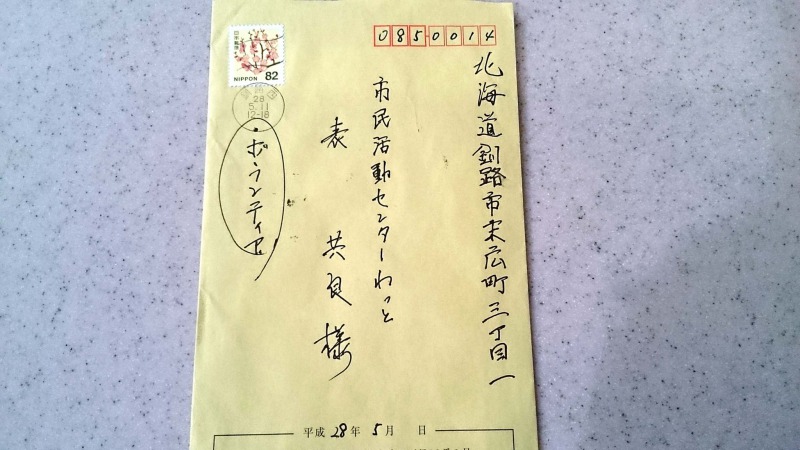 0850014
北海道釧路市末広町三丁目一
市民活動センターわっと
表 共良様
・ボランティア
日本郵便
NIPPON 82
28
5.11
12-18
平成28年5月 日